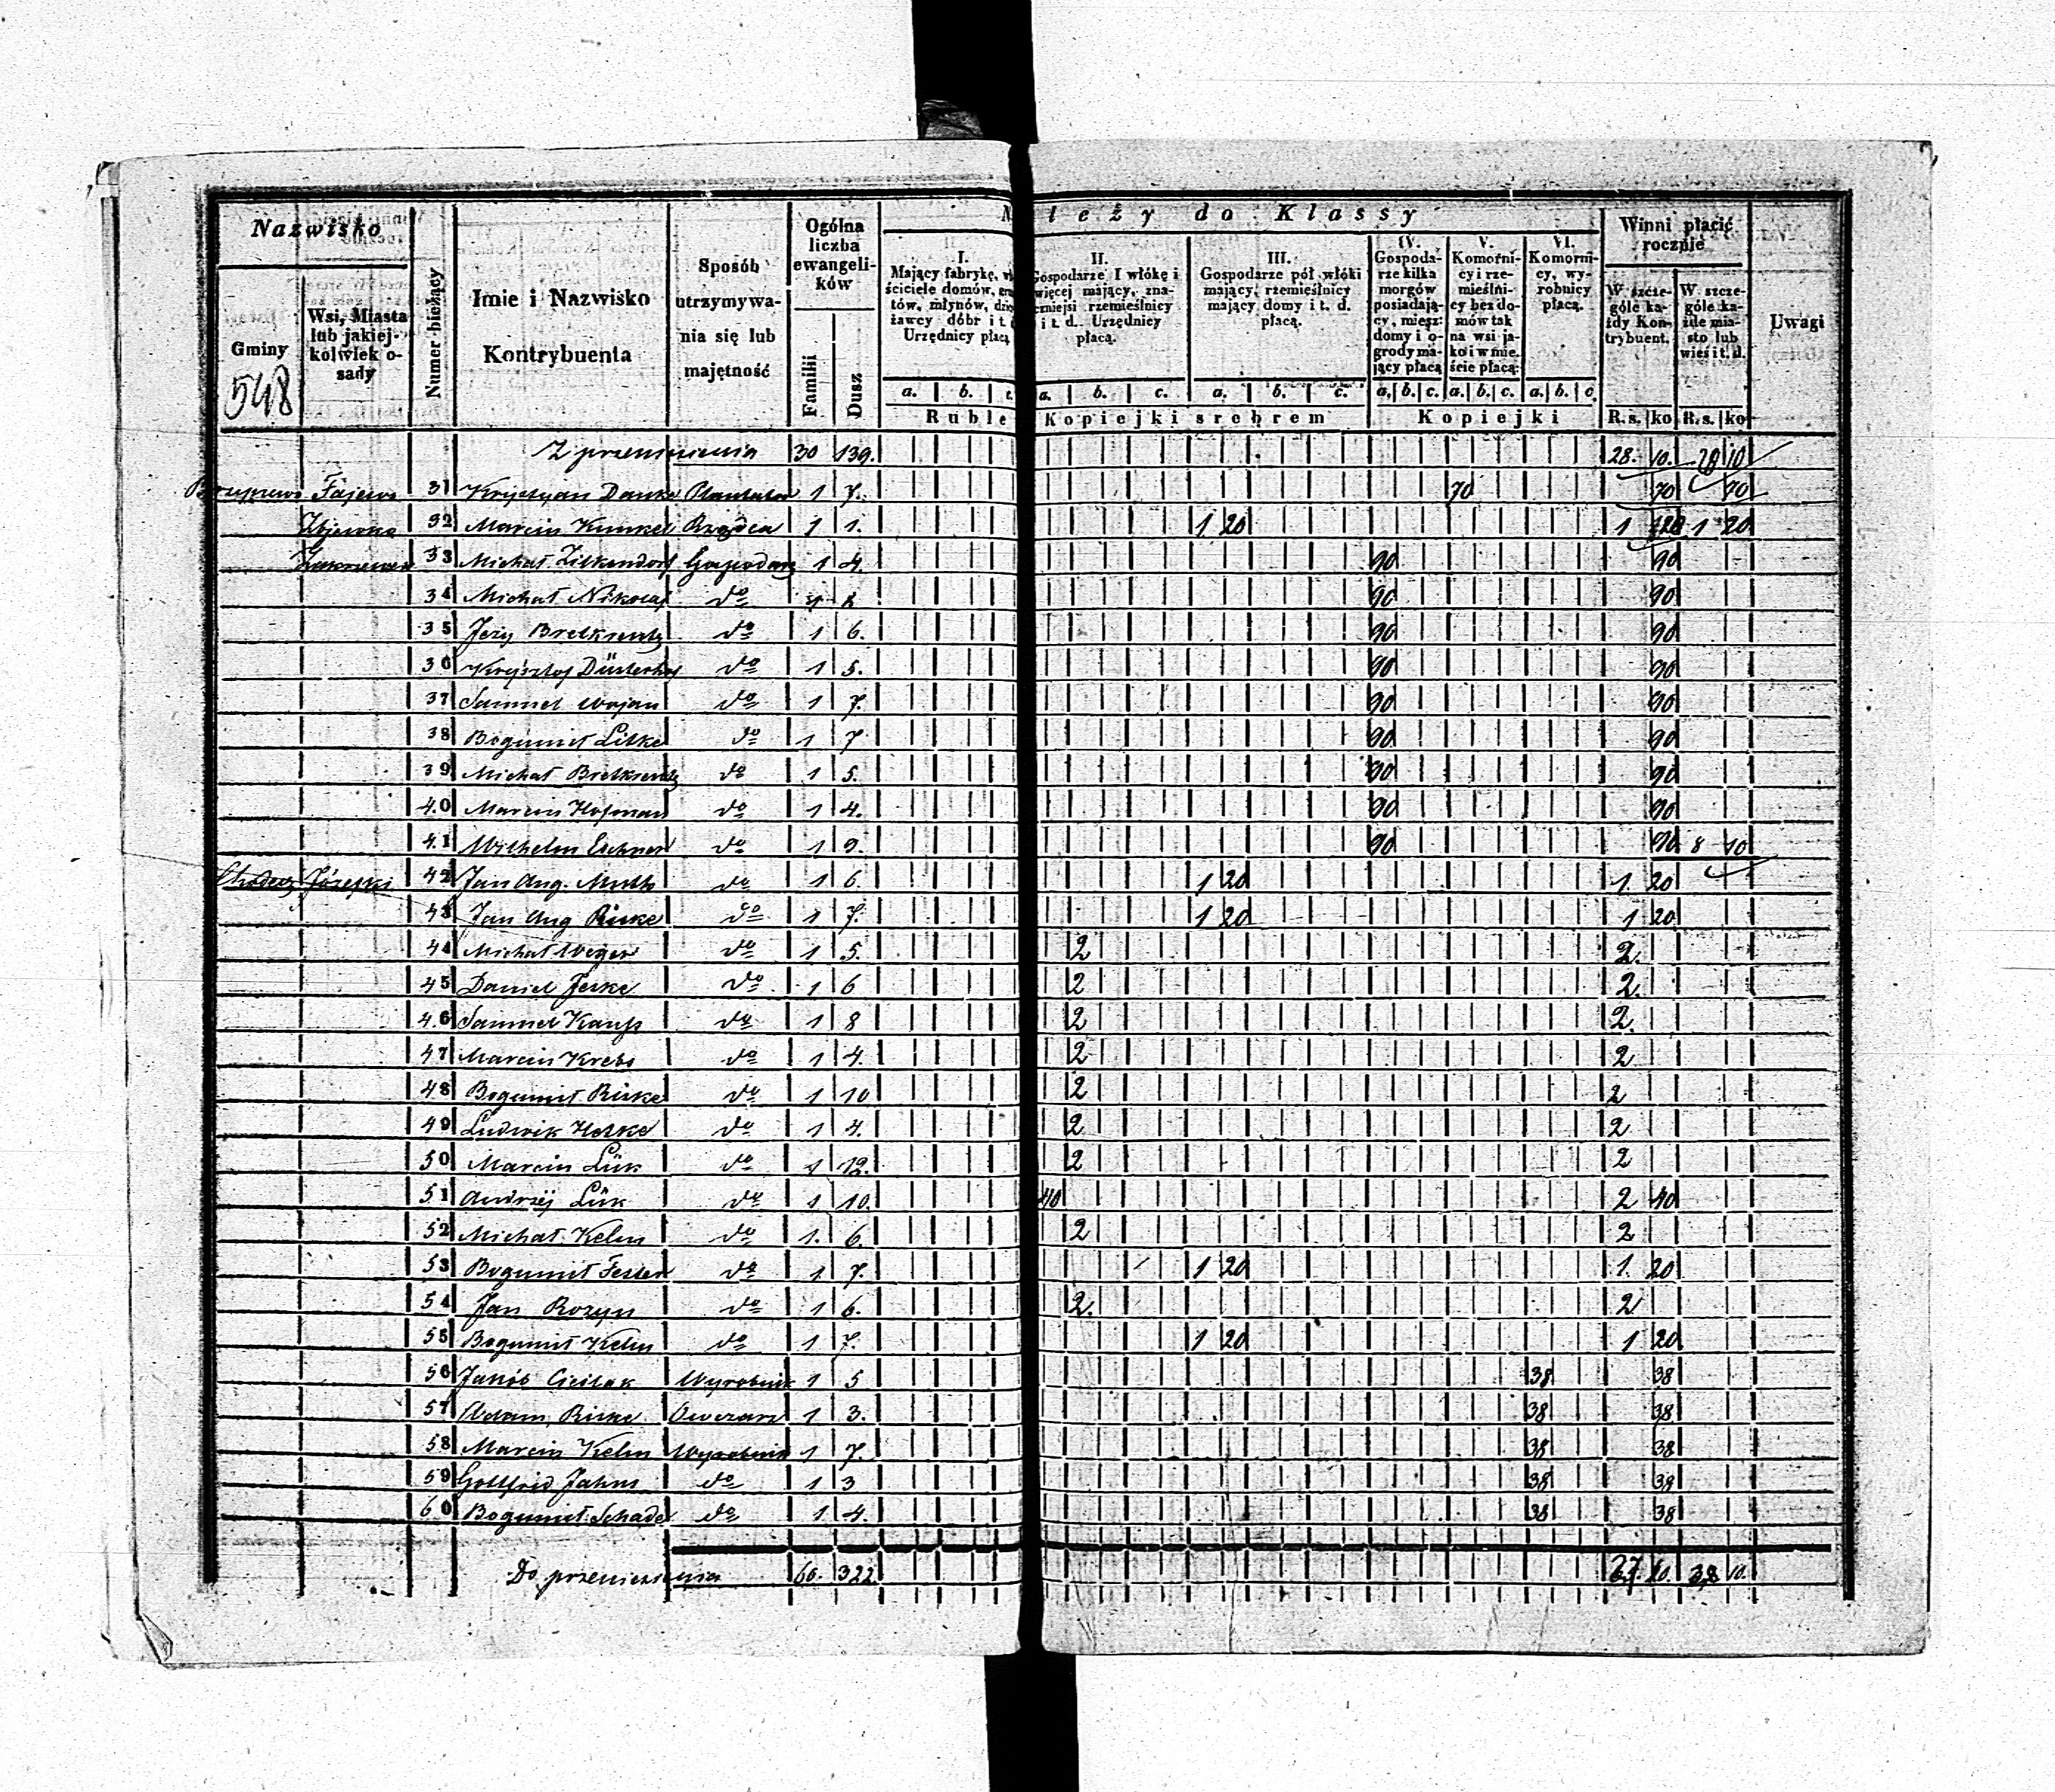 Nazwisko
Gminy
548
Wsi, Miasta lub jakiejkolwiek osady
Numer bieżący
Imie i Nazwisko Kontrybuenta
Sposób utrzymywania się lub majętność
Ogólna liczba ewangelików
Familii Dusz
leży do Klassy
I. Mający fabrykę,
ściciele domów,
tów, młynów,
żawcy dóbr i t.
Urzędnicy płacą
II. Gospodarze I włókę i więcej mający, znaczniejsi rzemieślnicy i t. d. Urzędnicy płacą.
III. Gospodarze pół włóki mający, rzemieślnicy mający domy i t. d. płacą.
IV. Gospodarze kilka morgów posiadający, miesz: domy i ogrody mający płacą
V. Komornicy i rzemieślnicy bez domów tak na wsi jako i w mieście płacą:
VI. Komornicy, wyrobnicy płacą.
Winni płacić rocznie
W szczególe każdy Kontrybuent.
W szczególe każde miasto lub wieś i t. d.
Uwagi
a. b. a. b. c. a. b. c. a. b. c. a. b. c. a. b. c.
Ruble Kopiejki srebrem Kopiejki R.s. ko R.s. ko
Z przeniesienia 30 139. 28. 10. 28 10
Fajewo 31 Krystyan Danke Plantator 1 7. 70 70 70
32 Marcin Kunkel Rządca 1 1. 1 20 1 20 1 20
33 Michał Zilkendorf Gospodarz 1 4. 90 90
34 Michał Nikolaj do 1 90 90
35 Jerzy Bretkrentz do 1 6. 90 90
36 Krysztof Düsterhof do 1 5. 90 90
37 Samuel Wojan do 1 7. 90 90
38 Bogumił Litke do 1 7 90 90
39 Michał Bretkrentz do 1 5. 90 90
40 Marcin Hofman do 1 4. 90 90
41 Wilhelm Eichner do 1 9. 90 90 8 10
Chodecz Józefki 42 Jan Aug. Muth do 1 6. 1 20 1. 20
43 Jan Aug Riske do 1 7. 1 20 1 20
44 Michał Weger do 1 5. 2 2.
45 Daniel Jeske do 1 6 2 2.
46 Samuel do 1 8 2 2.
47 Marcin Krebs do 1 4. 2 2
48 Bogumił Riske do 1 10 2 2
49 Ludwik Heske do 1 4. 2 2
50 Marcin Lük do 1 12. 2 2
51 Andrzej Lük do 1 10. 40 2 40
52 Michał Kelm do 1. 6. 2 2
53 Bogumił Fester do 1 7. 1 20 1. 20
54 Jan Rozyn do 1 6. 2. 2
55 Bogumił Kelm do 1 7. 1 20 1 20
56 Jakób Cieślak Wyrobnik 1 5 38 38
57 Adam Riske Owczarz 1 3. 38 38
58 Marcin Kelm Wyrobnik 1 7. 38 38
59 Gottfried Jahns do 1 3 38 38
60 Bogumił Schade do 1 4. 38 38
Do przeniesienia 60. 322. 10. 38 10.